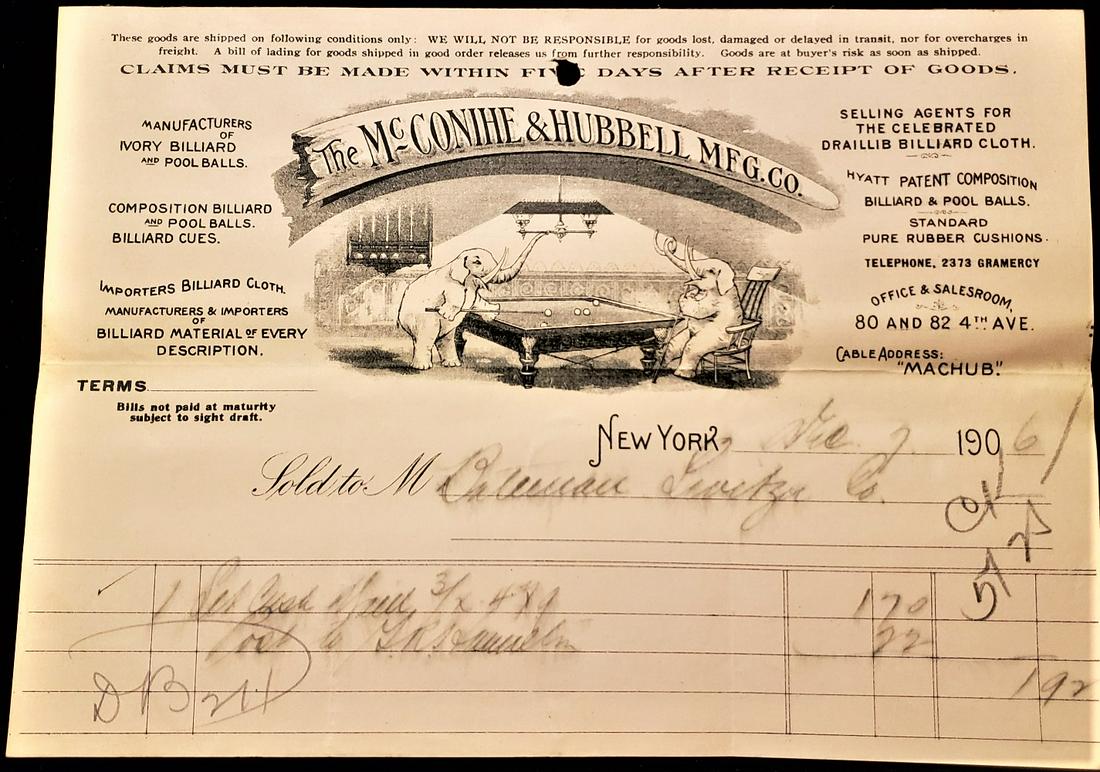 These goods are shipped on following conditions only: WE WILL NOT BE RESPONSIBLE for goods lost, damaged or delayed in transit, nor for overcharges in
freight. A bill of lading for goods shipped in good order releases us from further responsibility. Goods are at buyer's risk as soon as shipped.
CLAIMS MUST BE MADE WITHIN FIVE DAYS AFTER RECEIPT OF GOODS.
The McCONIHE & HUBBELL MFG. CO.
MANUFACTURERS
OF
IVORY BILLIARD
AND POOL BALLS.
COMPOSITION BILLIARD
AND POOL BALLS.
BILLIARD CUES.
IMPORTERS BILLIARD CLOTH.
MANUFACTURERS & IMPORTERS
OF
BILLIARD MATERIAL OF EVERY
DESCRIPTION.
SELLING AGENTS FOR
THE CELEBRATED
DRAILLIB BILLIARD CLOTH.
HYATT PATENT COMPOSITION
BILLIARD & POOL BALLS.
STANDARD
PURE RUBBER CUSHIONS.
TELEPHONE, 2373 GRAMERCY
OFFICE & SALESROOM,
80 AND 82 4TH AVE.
CABLE ADDRESS:
"MACHUB."
TERMS
Bills not paid at maturity
subject to sight draft.
NEW YORK, Dec. 7 1906
Sold to M Bateman Switzer Co.
1 Set 170
Cost to 22
192